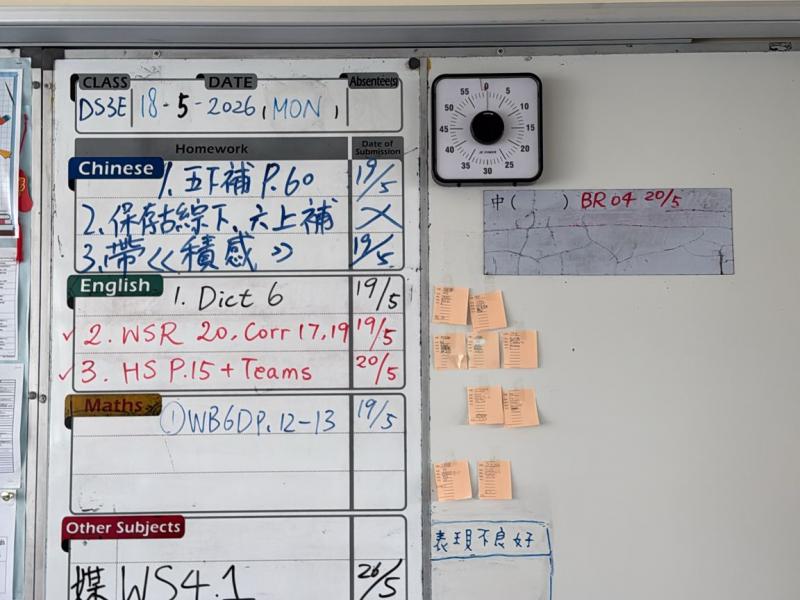 CLASS DATE Absentee(s)
DS3E 18-5-2026, MON,
Homework Date of Submission
Chinese
1. 五下補 P.60 19/5
2. 保存古綜下、六上補
3. 帶《積感》 19/5
English
1. Dict 6 19/5
✓ 2. WSR 20, Corr 17,19 19/5
✓ 3. HS P.15 + Teams 20/5
Maths
① WB6D P.12-13 19/5
Other Subjects
媒 WS4.1 26/5
0 5 10 15 20 25 30 35 40 45 50 55
中( ) BR 04 20/5
表現不良好